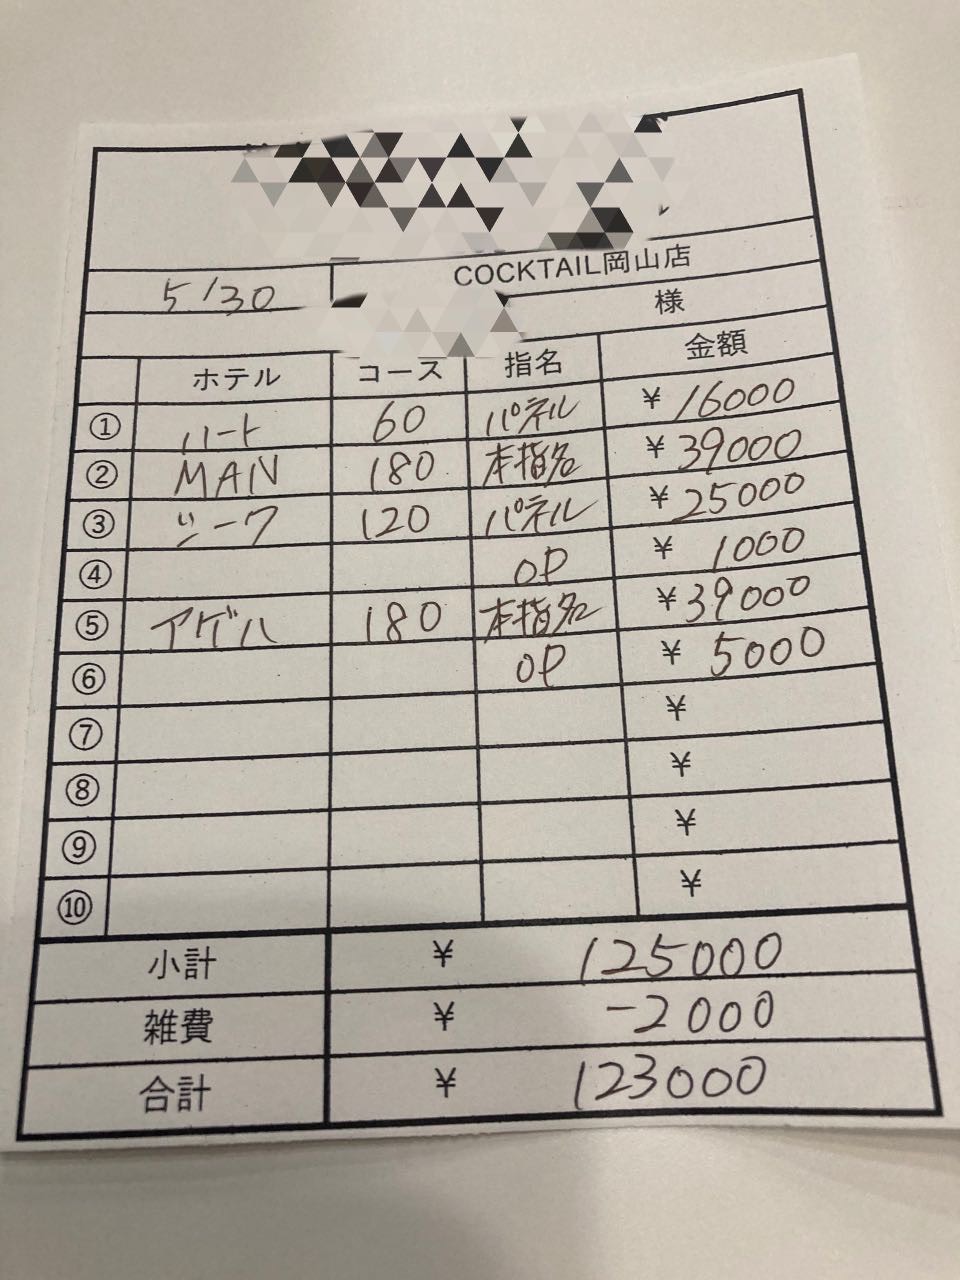 COCKTAIL岡山店
5/30
様
ホテル コース 指名 金額
① ハート 60 パネル ¥ 16000
② MAN 180 本指名 ¥ 39000
③ シーク 120 パネル ¥ 25000
④ OP ¥ 1000
⑤ アゲハ 180 本指名 ¥ 39000
⑥ OP ¥ 5000
⑦ ¥
⑧ ¥
⑨ ¥
⑩ ¥
小計 ¥ 125000
雑費 ¥ -2000
合計 ¥ 123000